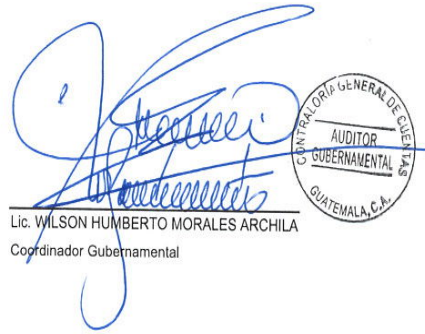 CONTRALORÍA GENERAL DE CUENTAS
AUDITOR
GUBERNAMENTAL
GUATEMALA, C.A.
Lic. WILSON HUMBERTO MORALES ARCHILA
Coordinador Gubernamental